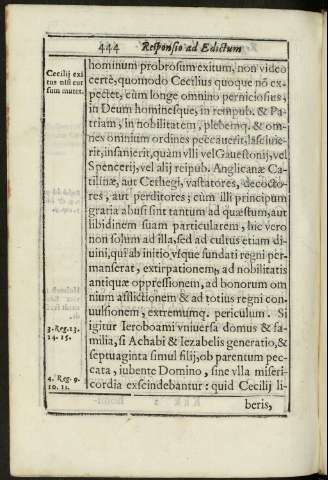 444 Responsio ad Edictum
Cecilij exi
tus nisi cur
sum mutet.
hominum probrosum exitum, non video
certè, quomodo Cecilius quoque nō ex-
pectet, cùm longe omnino perniciosius,
in Deum hominesque, in rempub. & Pa-
triam, in nobilitatem, plebemq. & om-
nes omnium ordines peccauerit, lasciuie-
rit, insanierit, quàm vlli vel Gauestonij, vel
Spencerij, vel alij reipub. Anglicanæ Ca-
tilinæ, aut Cethegi, vastatores, decocto-
res, aut perditores; cùm illi principum
gratia abusi sint tantum ad quæstum, aut
libidinem suam particularem, hic vero
non solum ad illa, sed ad cultus etiam di-
uini, qui ab initio, vsque fundati regni per-
manserat, extirpationem, ad nobilitatis
antiquæ oppressionem, ad bonorum om
nium afflictionem & ad totius regni con-
uulsionem, extremumq. periculum. Si
igitur Ieroboami vniuersa domus & fa-
milia, si Achabi & Iezabelis generatio, &
septuaginta simul filij, ob parentum pec-
cata, iubente Domino, sine vlla miseri-
cordia exscindebantur: quid Cecilij li-
beris,
3. Reg. 13.
14. 15.
4. Reg. 9.
10. 11.